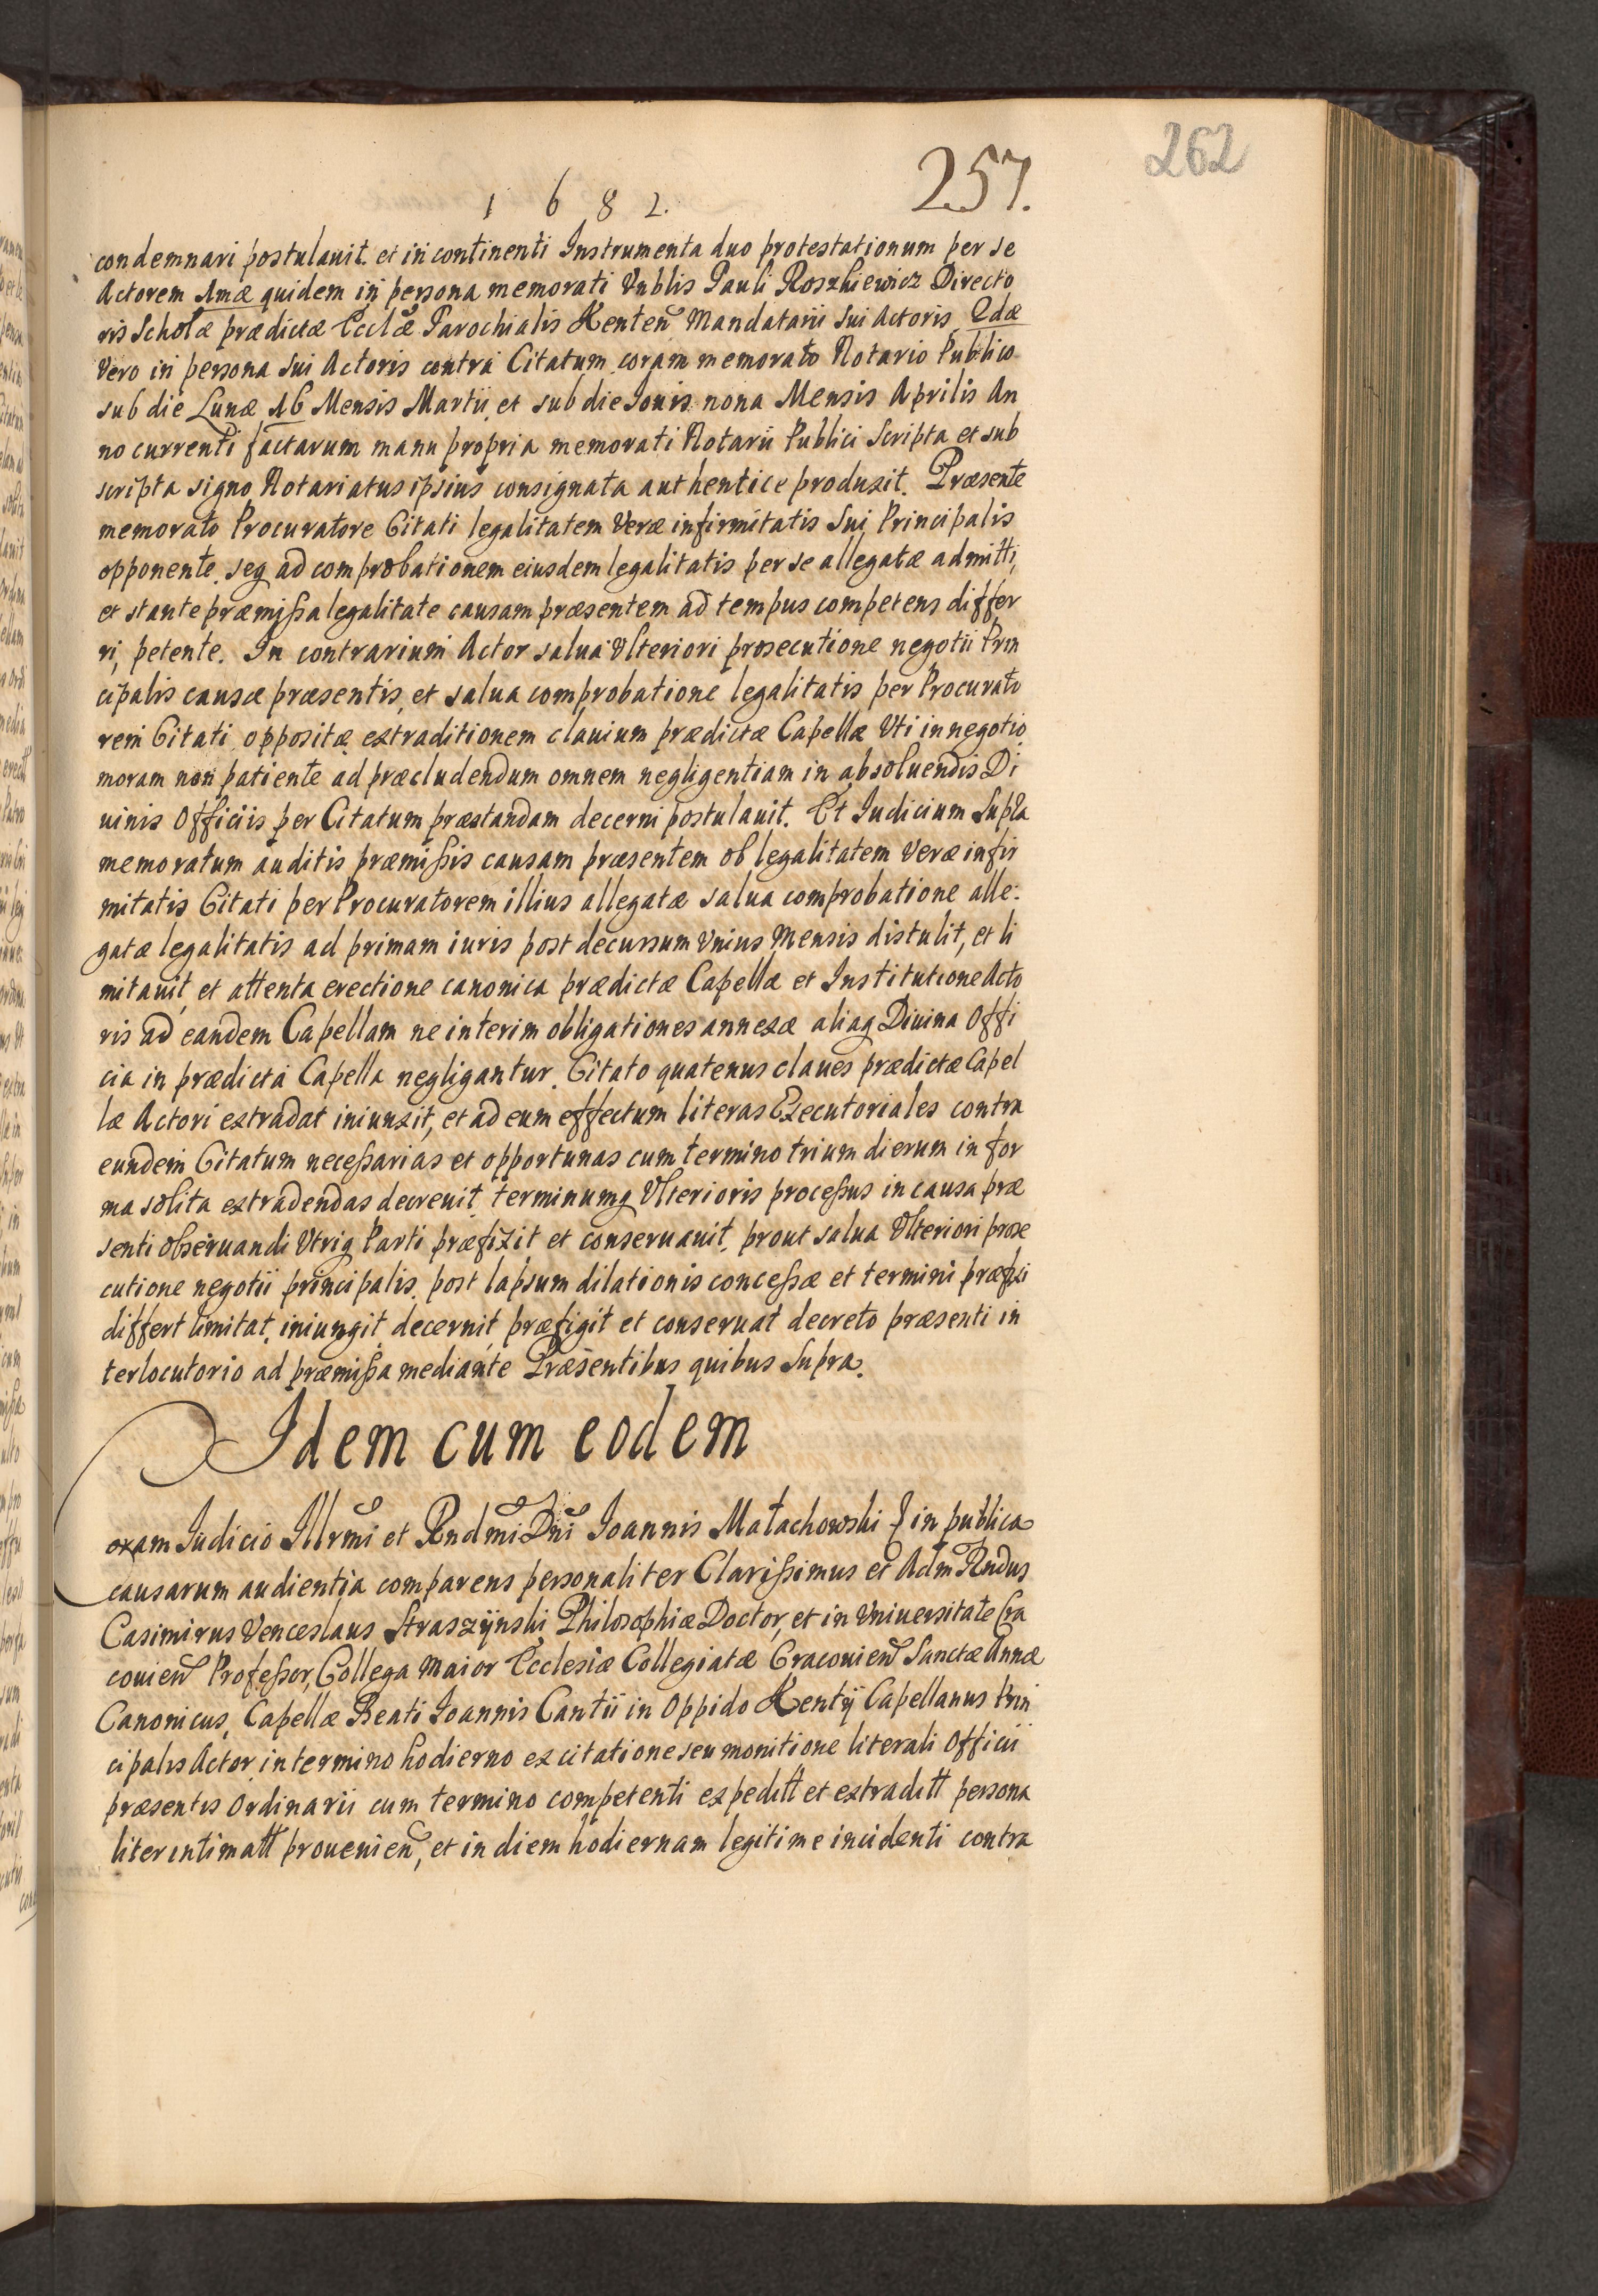 262
257.
1 6 8 2.
condemnari postulavit. et in continenti Instrumenta duo protestationum per se
Actorem 1mæ quidem in persona memorati Vnblis Pauli Roszkiewicz Directo
ris Scholæ prædictæ Ecclæ Parochialis Kenteñ Mandatarii sui Actoris, 2dæ
Vero in persona sui Actoris contra Citatum coram memorato Notario Publico
sub die Lunæ 16 Mensis Martii, et sub die Iouis nona Mensis Aprilis An
no currenti factarum manu propria memorati Notarii Publici Scripta et sub
scripta signo Notariatus ipsius consignata authentice produxit. Præsente
memorato Procuratore Citati legalitatem Veræ infirmitatis Sui Principalis
opponente, seq ad comprobationem eiusdem legalitatis per se allegatæ admitti,
et stante præmißa legalitate causam præsentem ad tempus competens differ
ri, petente. In contrarium Actor salua Vlteriori prosecutione negotii Prin
cipalis causæ præsentis, et salua comprobatione legalitatis per Procurato
rem Citati oppositæ extraditionem clauium prædictæ Capellæ Vti in negotio
moram non patiente ad præcludendum omnem negligentiam in absoluendis Di
uinis Officiis per Citatum præstandam decerni postulauit. Et Iudicium Supra
memoratum auditis præmißis causam præsentem ob legalitatem Veræ infir
mitatis Citati per Procuratorem illius allegatæ salua comprobatione alle:
gatæ legalitatis ad primam iuris post decursum Vnius Mensis distulit, et li
mitauit, et attenta erectione canonica prædictæ Capellæ et Institutione Acto
ris ad eandem Capellam ne interim obligationes annexæ aliaq Diuina Offi
cia in prædicta Capella negligantur. Citato quatenus claues prædictæ Capel
læ Actori extradat iniunxit, et ad eum effectum literas Executoriales contra
eundem Citatum neceßarias et opportunas cum termino trium dierum in for
ma solita extradendas decreuit, terminumq Vlterioris proceßus in causa præ
senti obseruandi Vtriq Parti præfixit et conseruauit, prout salua Vlteriori prose
cutione negotii principalis, post lapsum dilationis conceßæ et termini præfixi
differt limitat, iniungit, decernit, præfigit et conseruat decreto præsenti in
terlocutorio ad præmißa mediante Præsentibus quibus Supra.
Idem cum eodem
oram Iudicio Illrmi et Rndmi Dni Ioannis Małachowski in publica
causarum audientia comparens personaliter Clarißimus et Adm Rndus
Casimirus Venceslaus Straszÿnski Philosophiæ Doctor, et in Vniuersitate Cra
couieñ Profeßor, Collega Maior Ecclesiæ Collegiatæ Cracouieñ Sanctæ Annæ
Canonicus, Capellæ Beati Ioannis Cantii in Oppido Kentÿ Capellanus Prin
cipalis Actor, in termino hodierno ex citatione seu monitione literali Officii
præsentis Ordinarii cum termino competenti expeditt et extraditt persona
liter intimatt prouenieñ, et in diem hodiernam legitime incidenti contra